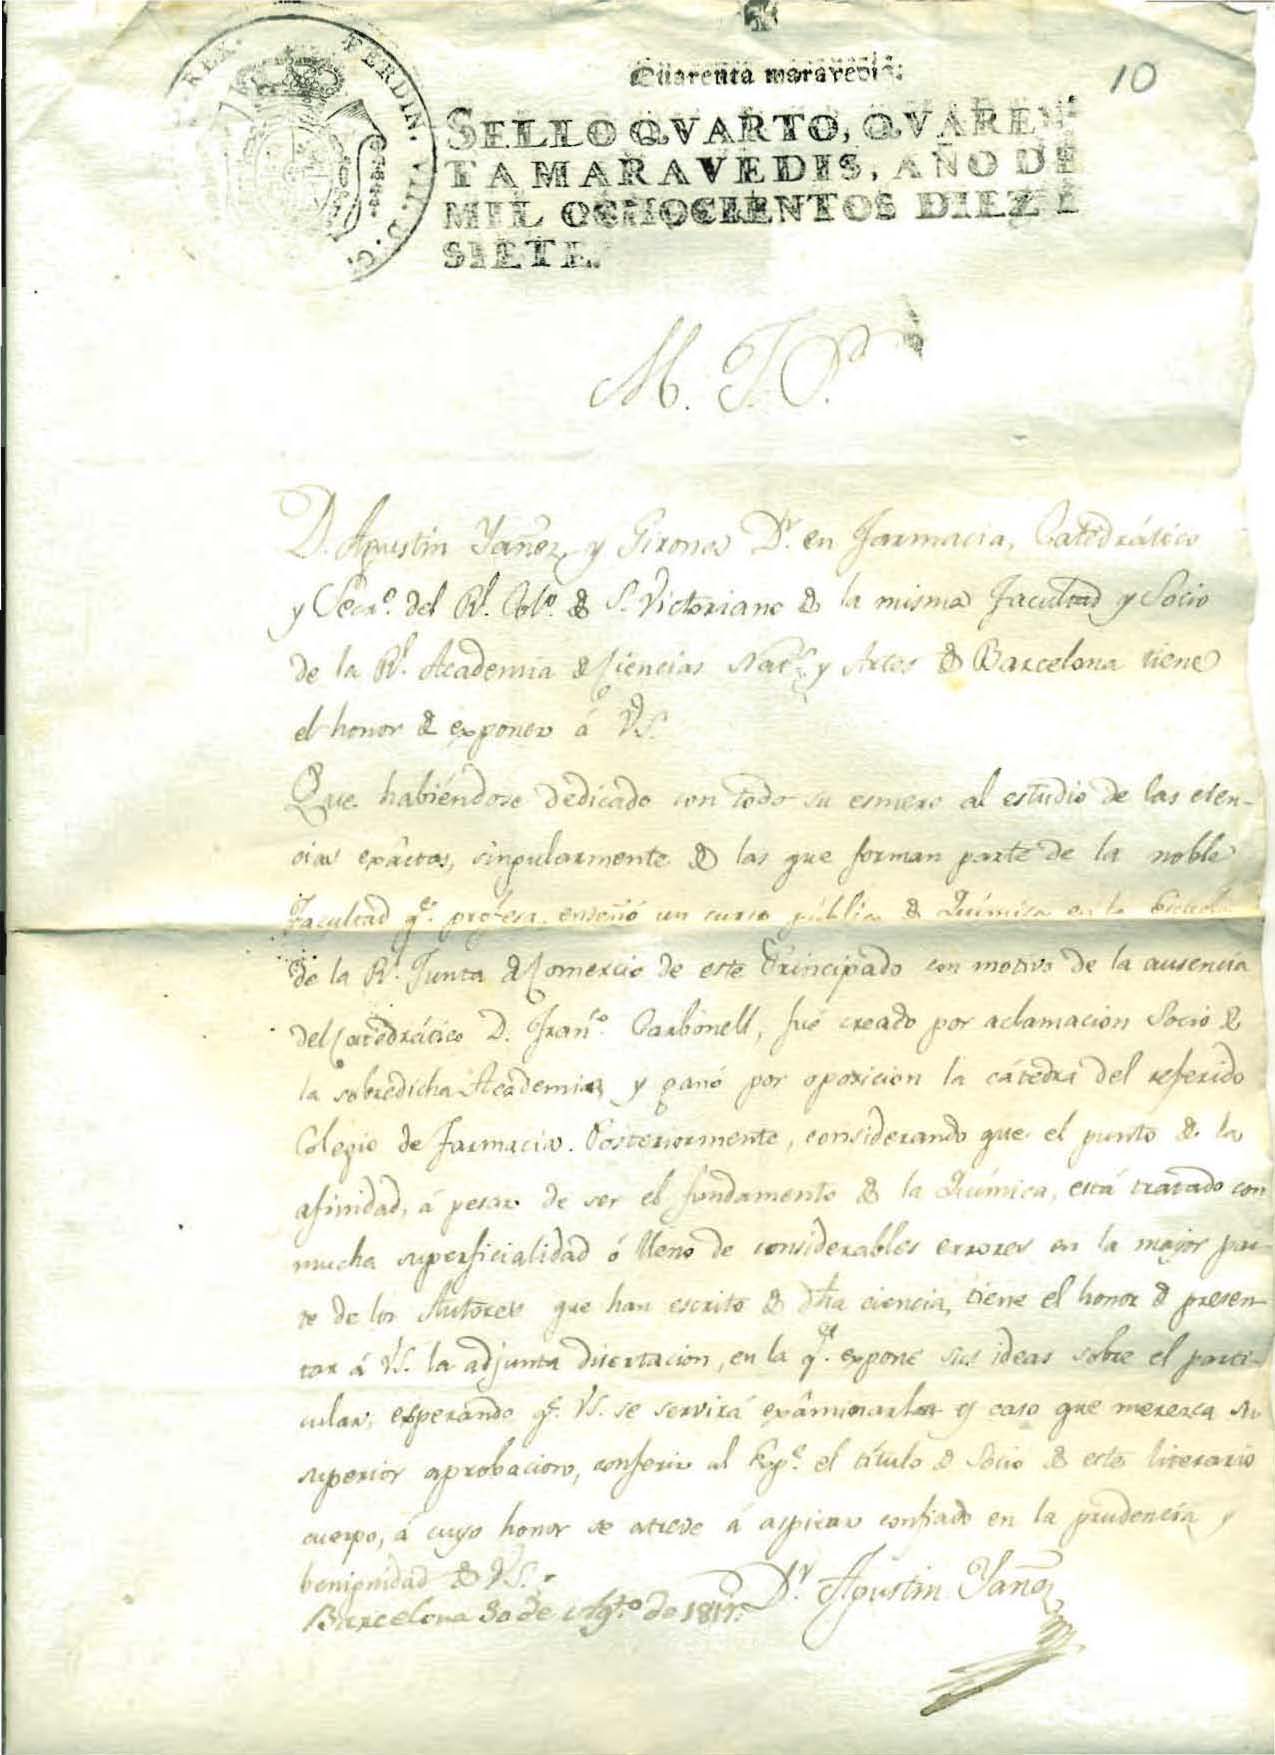 10
Quarenta maravedis.
REX. FERDIN. VII. D. G.
SELLO QVARTO, QVAREN
TA MARAVEDIS, AÑO DE
MIL OCHOCIENTOS DIEZ I
SIETE.
M. I. S.
D. Agustin Yañez y Girona Dr. en Farmacia, Catedrático
y Secro. del Rl. Colo. de S. Victoriano de la misma Facultad y Socio
de la Rl. Academia de Ciencias Nats. y Artes de Barcelona tiene
el honor de exponer á VS.
Que habiéndose dedicado con todo su esmero al estudio de las cien-
cias exâctas, singularmente de las que forman parte de la noble
Facultad qe. profesa, enseñó un curso público de Química en la Escuela
de la Rl. Junta de Comercio de este Principado con motivo de la ausencia
del Catedrático D. Franco. Carbonell, fué creado por aclamacion Socio de
la sobredicha Academia, y ganó por oposicion la cátedra del referido
Colegio de Farmacia. Posteriormente, considerando que el punto de la
afinidad, á pesar de ser el fundamento de la Química, está tratado con
mucha superficialidad ó lleno de considerables errores en la mayor par-
te de los Autores que han escrito de dha ciencia, tiene el honor de presen-
tar á VS. la adjunta disertacion, en la qe. expone sus ideas sobre el parti-
cular, esperando qe. VS. se servirá exâminarla y caso que merezca su
superior aprobacion, conferir al Expe. el título de Socio de este literario
cuerpo, á cuyo honor se atreve á aspirar confiado en la prudencia y
benignidad de VS.
Barcelona 30 de Agto. de 1817.
Dr. Agustin Yañez